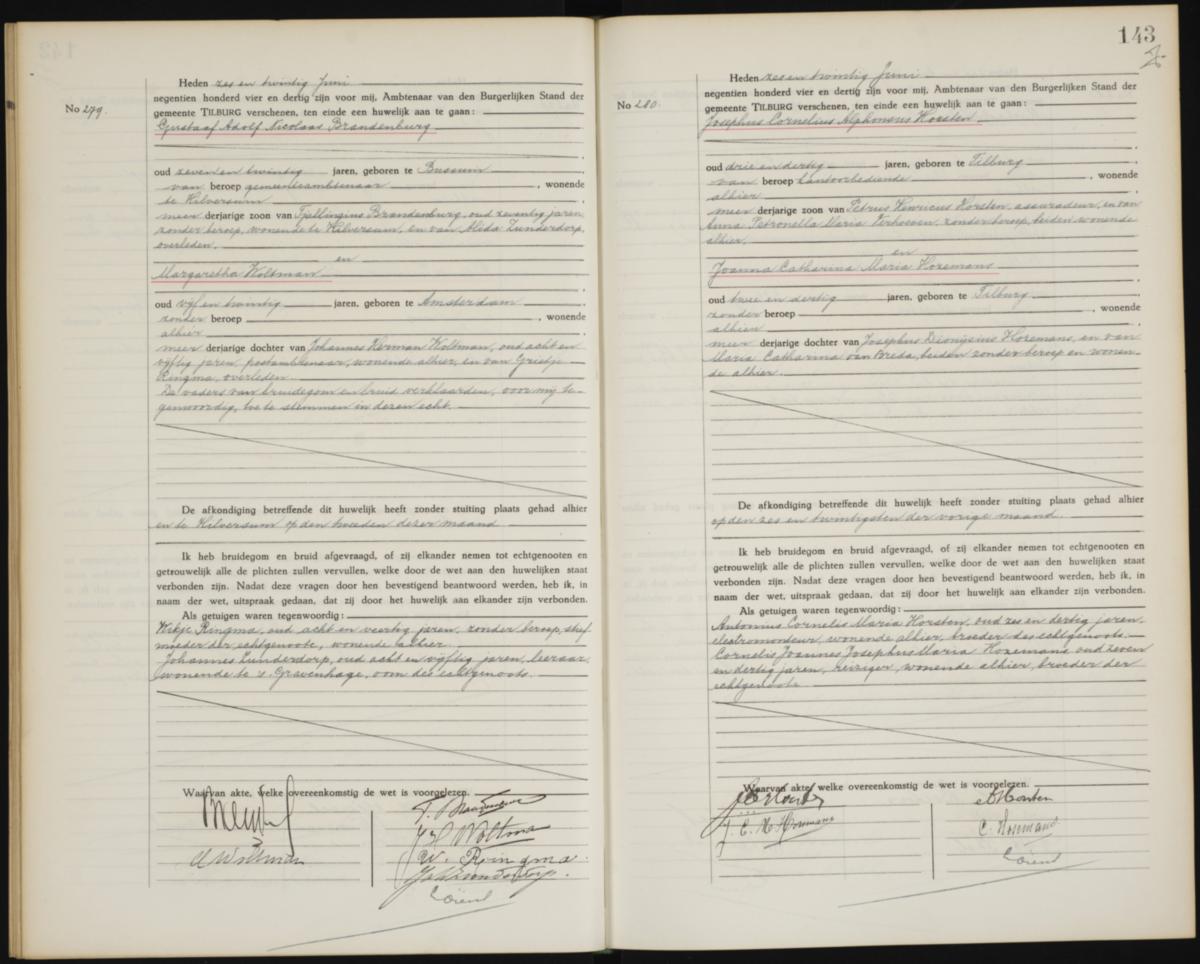 No 279.
Heden zes en twintig Juni
negentien honderd vier en dertig zijn voor mij, Ambtenaar van den Burgerlijken Stand der
gemeente TILBURG verschenen, ten einde een huwelijk aan te gaan:
Gustaaf Adolf Nicolaas Brandenburg
oud zeven en twintig jaren, geboren te Bussum
van beroep gemeenteambtenaar, wonende
te Hilversum
meer derjarige zoon van Tjallingius Brandenburg, oud zeventig jaren,
zonder beroep, wonende te Hilversum, en van Alida Zunderdorp,
overleden.
en
Margaretha Woltman
oud vijf en twintig jaren, geboren te Amsterdam
zonder beroep, wonende
alhier
meer derjarige dochter van Johannes Herman Woltman, oud acht en
vijftig jaren, postambtenaar, wonende alhier, en van Grietje
Ringma, overleden
De vaders van bruidegom en bruid verklaarden, voor mij te-
genwoordig, toe te stemmen in dezen echt.
De afkondiging betreffende dit huwelijk heeft zonder stuiting plaats gehad alhier
en te Hilversum op den tweeden dezer maand
Ik heb bruidegom en bruid afgevraagd, of zij elkander nemen tot echtgenooten en
getrouwelijk alle de plichten zullen vervullen, welke door de wet aan den huwelijken staat
verbonden zijn. Nadat deze vragen door hen bevestigend beantwoord werden, heb ik, in
naam der wet, uitspraak gedaan, dat zij door het huwelijk aan elkander zijn verbonden.
Als getuigen waren tegenwoordig:
Wikje Ringma, oud acht en veertig jaren, zonder beroep, stief
moeder der echtgenoote, wonende alhier.
Johannes Zunderdorp, oud acht en vijftig jaren, leeraar,
wonende te 's Gravenhage, oom des echtgenoots.
Waarvan akte, welke overeenkomstig de wet is voorgelezen.
T. Brandenburg
J H Woltman
M Woltman
W. Ringma
Joh Zunderdorp.
143
No 280.
Heden zes en twintig Juni
negentien honderd vier en dertig zijn voor mij, Ambtenaar van den Burgerlijken Stand der
gemeente TILBURG verschenen, ten einde een huwelijk aan te gaan:
Josephus Cornelius Alphonsus Horsten
oud drie en dertig jaren, geboren te Tilburg
van beroep kantoorbediende, wonende
alhier
meer derjarige zoon van Petrus Henricus Horsten, assuradeur, en van
Anna Petronella Maria Verhoeven, zonder beroep, beiden wonende
alhier.
en
Joanna Catharina Maria Hozemans
oud twee en dertig jaren, geboren te Tilburg
zonder beroep, wonende
alhier
meer derjarige dochter van Josephus Dionysius Hozemans, en van
Maria Catharina van Breda, beiden zonder beroep en wonen-
de alhier.
De afkondiging betreffende dit huwelijk heeft zonder stuiting plaats gehad alhier
op den zes en twintigsten der vorige maand.
Ik heb bruidegom en bruid afgevraagd, of zij elkander nemen tot echtgenooten en
getrouwelijk alle de plichten zullen vervullen, welke door de wet aan den huwelijken staat
verbonden zijn. Nadat deze vragen door hen bevestigend beantwoord werden, heb ik, in
naam der wet, uitspraak gedaan, dat zij door het huwelijk aan elkander zijn verbonden.
Als getuigen waren tegenwoordig:
Antonius Cornelis Maria Horsten, oud zes en dertig jaren,
electromonteur, wonende alhier, broeder des echtgenoots.
Cornelis Joannes Josephus Maria Hozemans oud zeven
en dertig jaren, reiziger, wonende alhier, broeder der
echtgenoote
Waarvan akte, welke overeenkomstig de wet is voorgelezen.
J. C. M. Hozemans
A Horsten
C. Hozemans